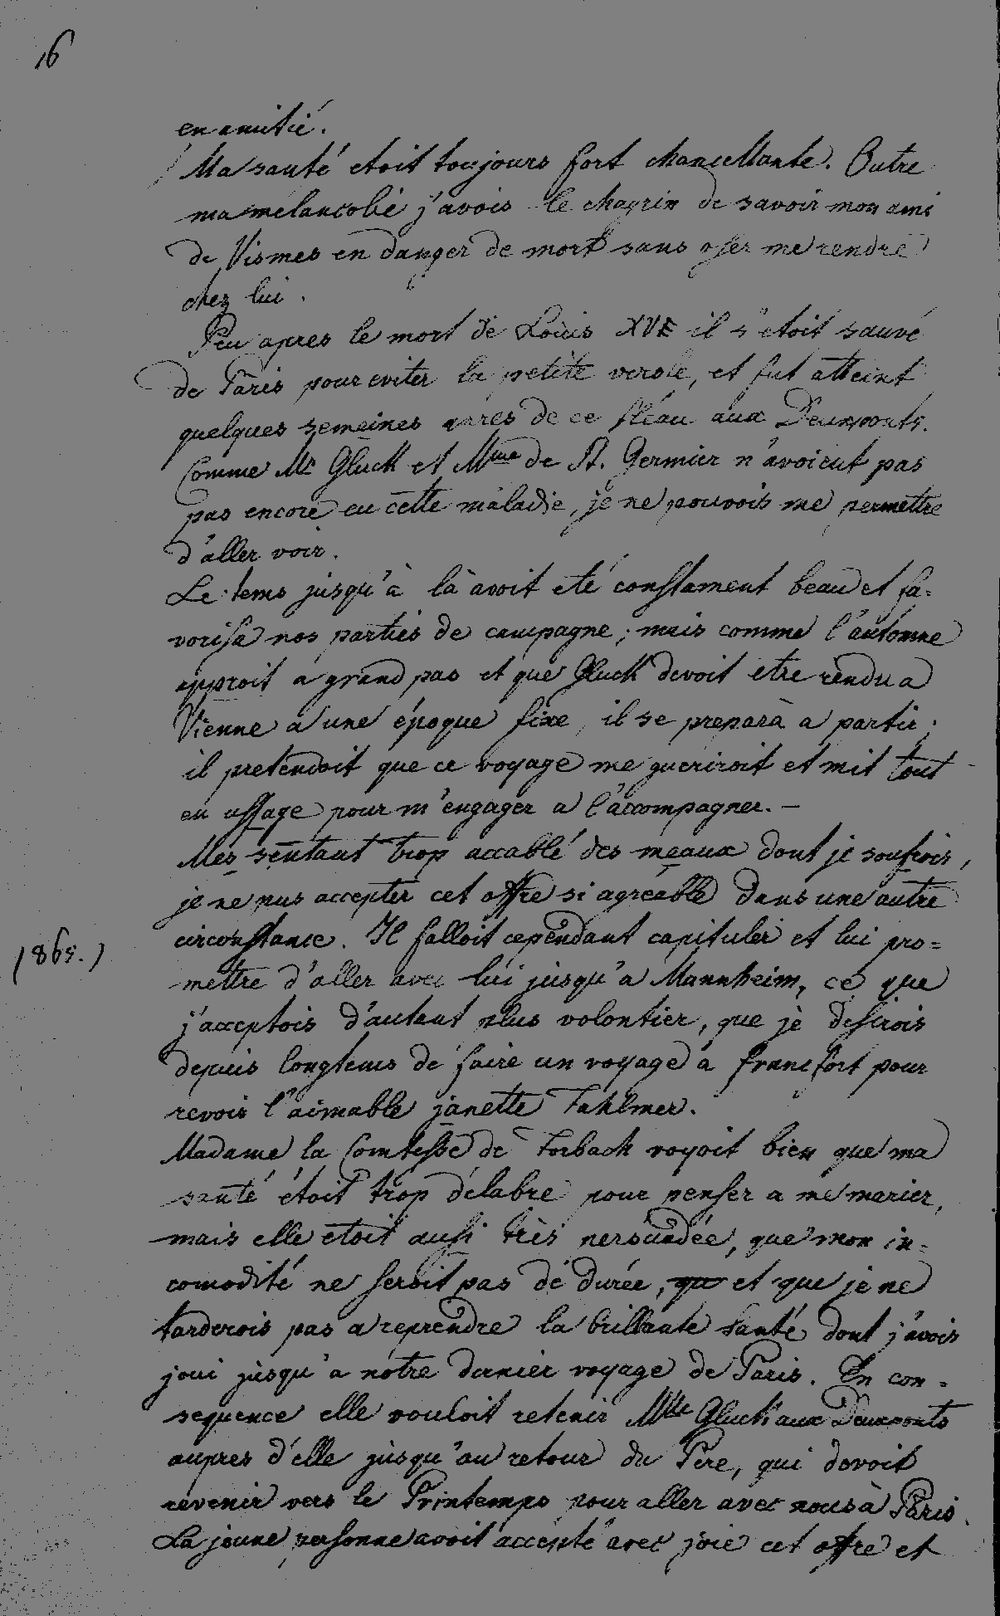 16
en amitié.
Ma santé etoit toujours fort chancellante. Outre
ma melancolie j'avois le chagrin de savoir mon ami
de Vismes en danger de mort sans oser me rendre
chez lui.
Peu apres le mort de Louis XVE il s'etoit sauvé
de Paris pour eviter la petite verole, et fut atteint
quelques semeines apres de ce fléau aux Deuxponts.
Comme Mr Gluck et Mme de St. Germier n'avoient pas
pas encore eu cette maladie, je ne pouvois me permettre
d'aller voir.
Le tems jusqu'à là avoit eté constament beau et fa-
vorisa nos parties de campagne; mais comme l'automne
approit a grand pas et que Gluck devoit etre rendu a
Vienne a une époque fixe, il se prepara a partir;
il pretendoit que ce voyage me gueriroit et mit tout
en usage pour m'engager a l'accompagner. -
Mes sentant trop accablé des meaux dont je soufrois,
je ne pus accepter cet offre si agréable dans une autre
circonstance. Il falloit cependant capituler et lui pro-
1865.)
mettre d'aller avec lui jusqu'a Mannheim, ce que
j'acceptois d'autant plus volontier, que je desirois
depuis longtems de faire un voyage a francfort pour
revois l'aimable janette Fahlmer.
Madame la Comtesse de Forback voyoit bien que ma
santé étoit trop délabre pour penser a me marier,
mais elle etoit aussi très persuadée, que mon in-
comodité ne seroit pas de durée, que et que je ne
tarderois pas a reprendre la brillante santé dont j'avois
joui jusqu'a nôtre dernier voyage de Paris. En con-
sequence elle vouloit retenir Mlle Gluck aux Deuxponts
aupres d'elle jusqu'au retour du Pere, qui devoit
revenir vers le Printemps pour aller avec nous à Paris.
La jeune personne avoit accepté avec joie cet offre et